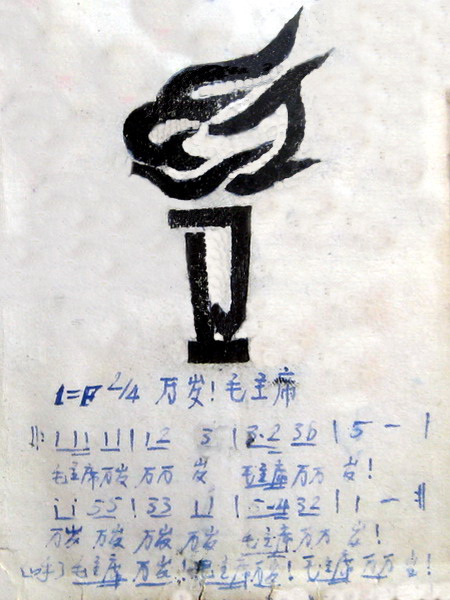 1=F 2/4 万岁!毛主席
‖: 1 1 1 1 1 | 1 2 3 | 3·2 3 6 | 5 - |
毛主席万岁 万万 岁 毛主席 万万 岁!
i i 5 5 | 3 3 1 1 | 5·4 3 2 | 1 - :‖
万岁 万岁 万岁 万岁 毛主席 万万 岁!
毛主席 万岁!毛主席万岁!毛主席 万万 岁!